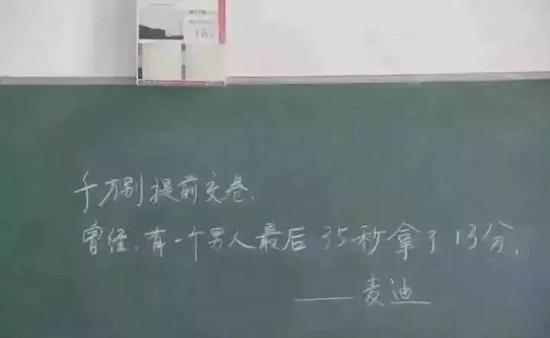 千万别提前交卷,
曾经,有一个男人最后35秒拿了13分、
——麦迪